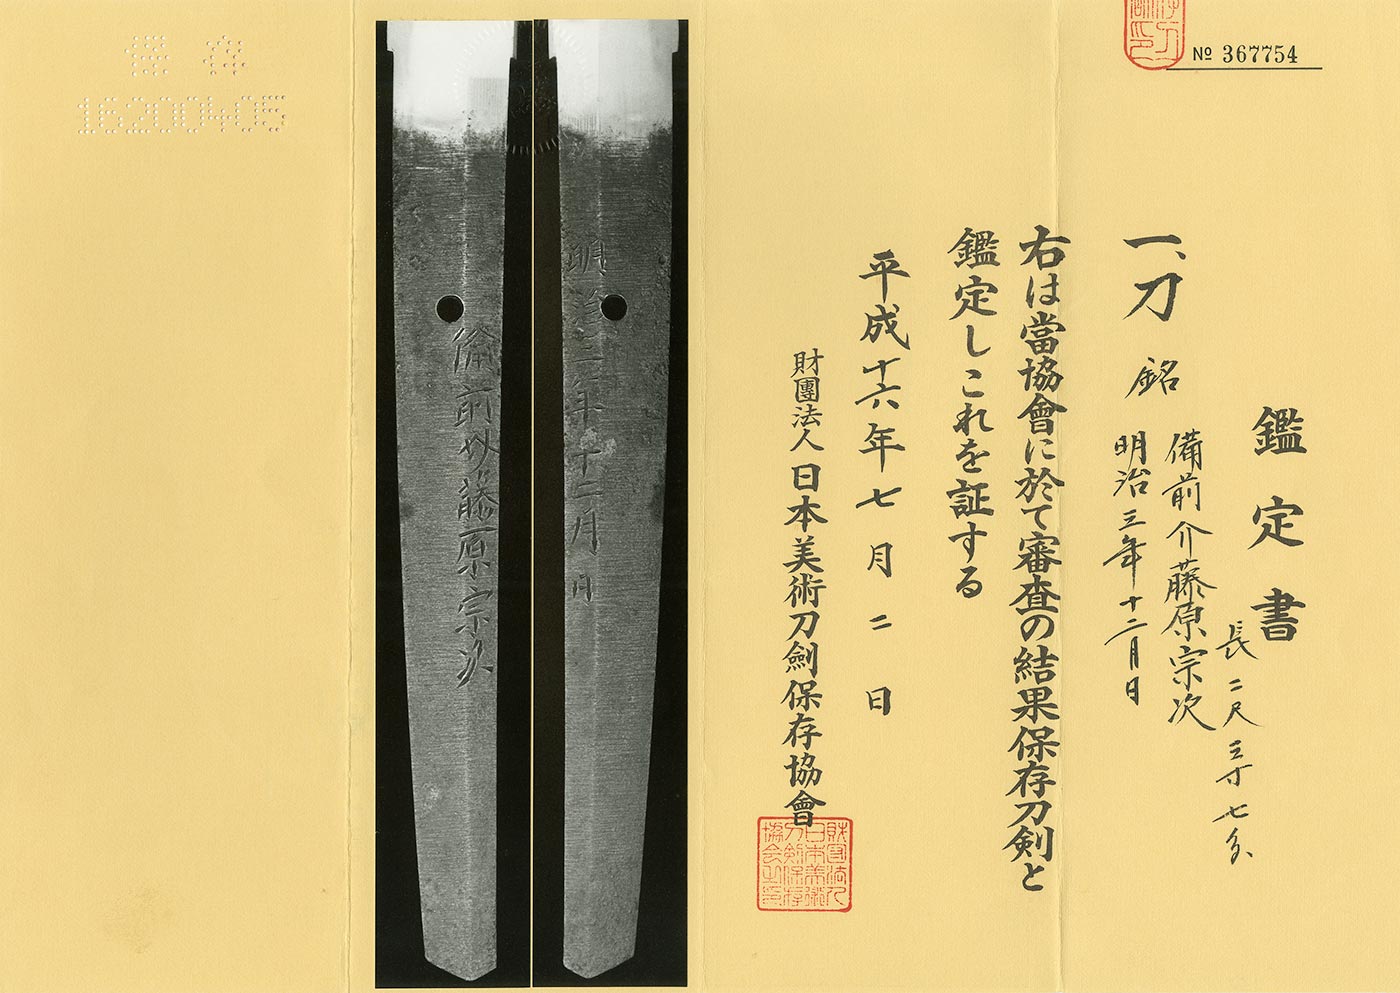 № 367754
鑑定書
一、刀 銘 備前介藤原宗次
明治三年十二月日
長二尺三寸七分
右は當協會に於て審査の結果保存刀剣と
鑑定しこれを証する
平成十六年七月二日
財團法人 日本美術刀劍保存協會
財団法人
日本美術
刀剣保存
協会之印
明治三年十二月日
備前介藤原宗次
保存
16200405